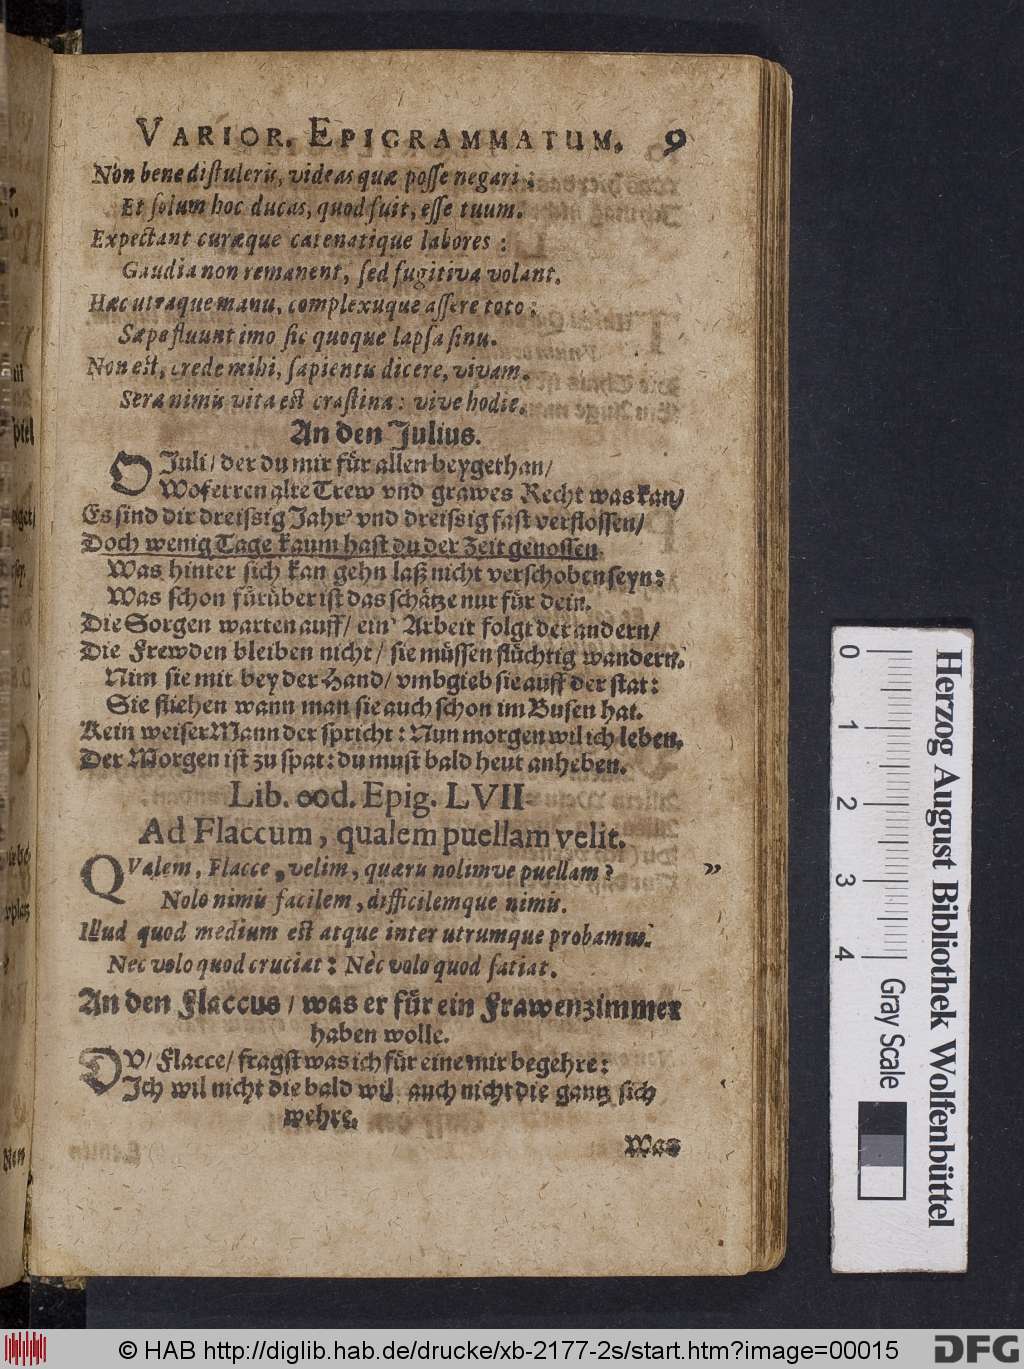 VARIOR. EPIGRAMMATUM. 9
Non bene distuleris, videas quæ posse negari;
Et solum hoc ducas, quod fuit, esse tuum.
Expectant curæque catenatique labores:
Gaudia non remanent, sed fugitiva volant.
Hæc utraque manu, complexuque assere toto:
Sæpe fluunt imo sic quoque lapsa sinu.
Non est, crede mihi, sapientis dicere, vivam.
Sera nimis vita est crastina: vive hodie.
An den Julius.
O Juli/ der du mir für allen beygethan/
Woferren alte Trew vnd grawes Recht was kan/
Es sind dir dreissig Jahr' vnd dreissig fast verflossen/
Doch wenig Tage kaum hast du der Zeit genossen.
Was hinter sich kan gehn laß nicht verschoben seyn:
Was schon fürüber ist das schätze nur für dein.
Die Sorgen warten auff/ ein' Arbeit folgt der andern/
Die Frewden bleiben nicht/ sie müssen flüchtig wandern.
Nim sie mit beyder Hand/ vmbgieb sie auff der stat:
Sie fliehen wann man sie auch schon im Busen hat.
Kein weiser Mann der spricht: Nun morgen wil ich leben.
Der Morgen ist zu spat: du must bald heut anheben.
Lib. eod. Epig. LVII.
Ad Flaccum, qualem puellam velit.
QValem, Flacce, velim, quæris nolimve puellam? ”
Nolo nimis facilem, difficilemque nimis.
Illud quod medium est atque inter utrumque probamus.
Nec volo quod cruciat: Nec volo quod satiat.
An den Flaccus/ was er für ein Frawenzimmer
haben wolle.
DV/ Flacce/ fragst was ich für eine mir begehre:
Ich wil nicht die bald wil auch nicht die gantz sich
wehre.
Was
piel
Herzog August Bibliothek Wolfenbüttel
0 1 2 3 4
Gray Scale
© HAB http://diglib.hab.de/drucke/xb-2177-2s/start.htm?image=00015
DFG